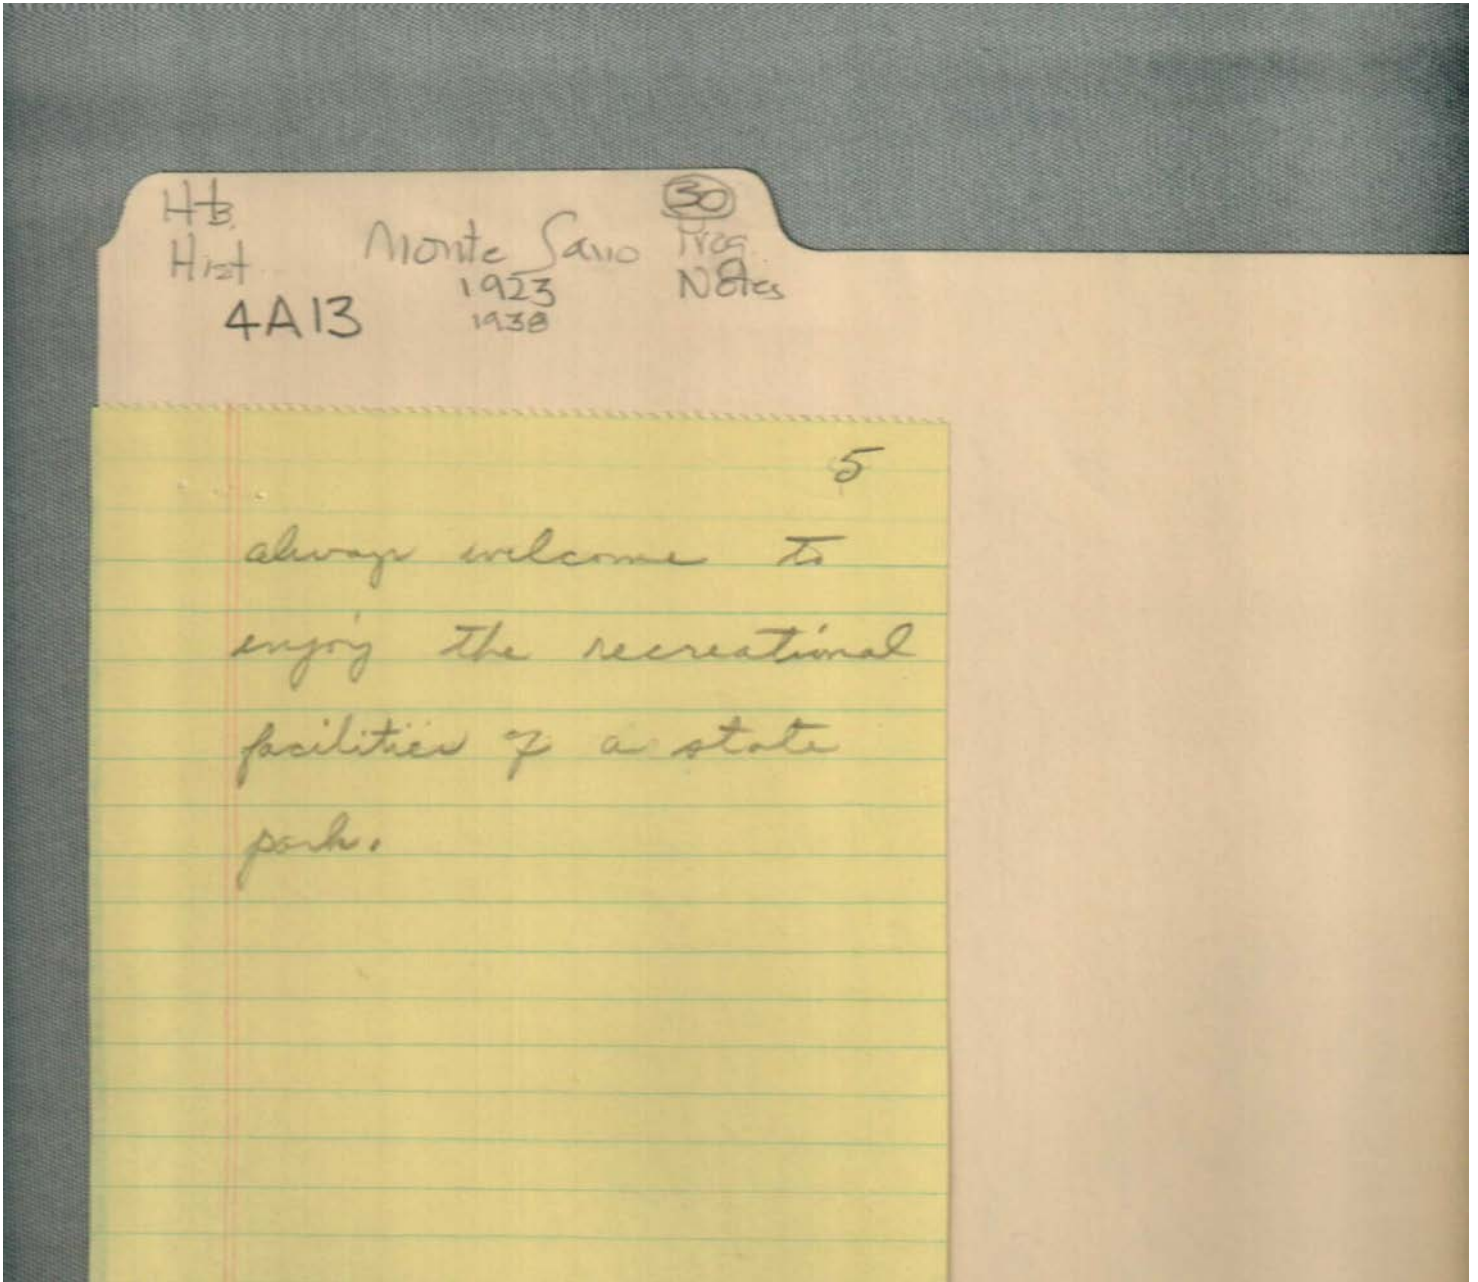 Htb.
Hist
4A13
Monte Sano
1923
1938
30
Prog.
Notes
5
always welcome to
enjoy the recreational
facilities of a state
park.